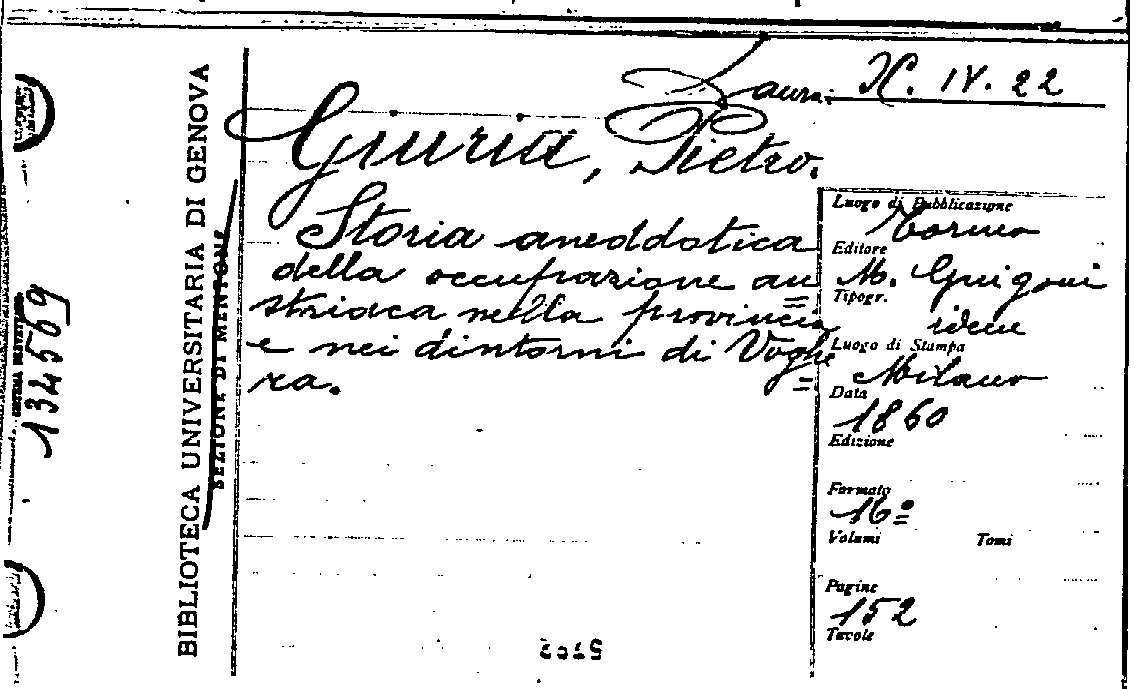 Laura: X. IV. 22
Giuria, Pietro.
Storia aneddotica
della occupazione au=
striaca nella provincia
e nei dintorni di Voghe=
ra.
Luogo di Pubblicazione
Torino
Editore
M. Guigoni
Tipogr.
idem
Luogo di Stampa
Milano
Data
1860
Edizione
Formato
16º
Volumi Tomi
Pagine
152
Tavole
BIBLIOTECA UNIVERSITARIA DI GENOVA
SEZIONE DI MENTONE
134569